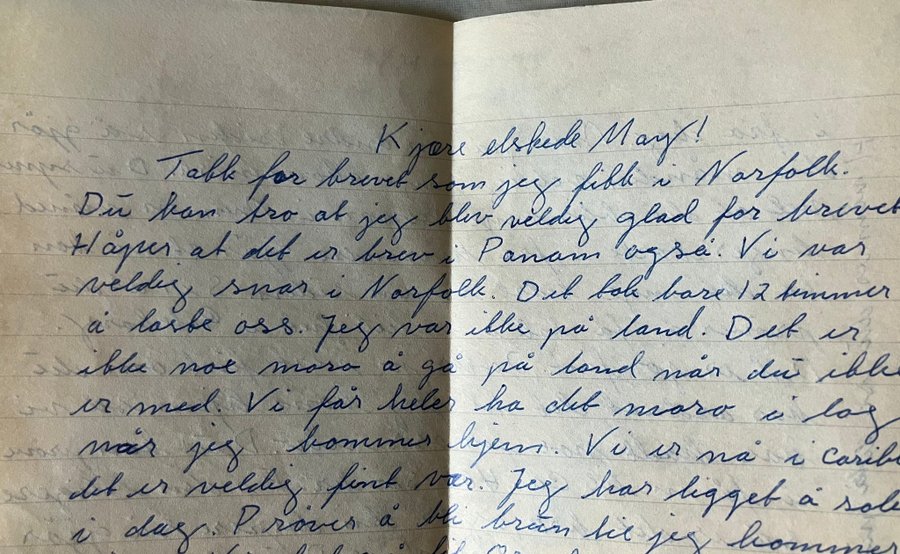 Kjære elskede May!
Takk for brevet som jeg fikk i Norfolk.
Du kan tro at jeg blev veldig glad for brevet
Håper at det er brev i Panam også. Vi var
veldig snar i Norfolk. Det tok bare 12 timmer
å laste oss. Jeg var ikke på land. Det er
ikke noe moro å gå på land når du ikke
er med. Vi får heler ha det moro i lag
når jeg kommer hjem. Vi er nå i caribi
det er veldig fint vær. Jeg har ligget å sole
i dag. Prøver å bli brun til jeg kommer